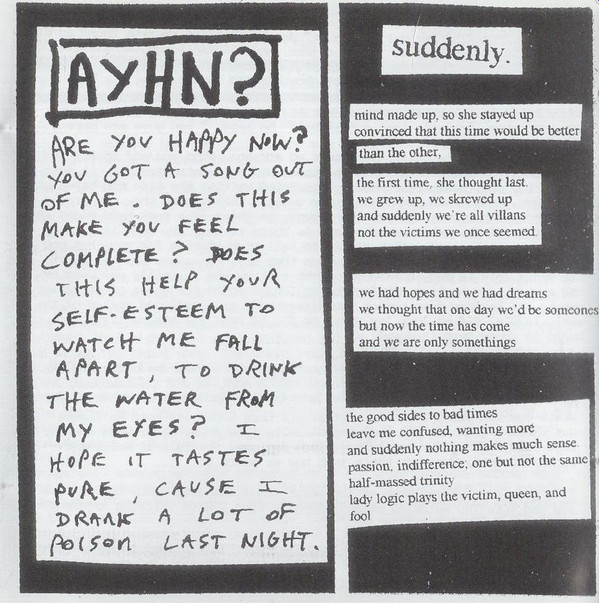 AYHN?
ARE YOU HAPPY NOW?
YOU GOT A SONG OUT
OF ME. DOES THIS
MAKE YOU FEEL
COMPLETE? DOES
THIS HELP YOUR
SELF-ESTEEM TO
WATCH ME FALL
APART, TO DRINK
THE WATER FROM
MY EYES? I
HOPE IT TASTES
PURE, CAUSE I
DRANK A LOT OF
POISON LAST NIGHT.
suddenly.
mind made up, so she stayed up
convinced that this time would be better
than the other,
the first time, she thought last.
we grew up, we skrewed up
and suddenly we're all villans
not the victims we once seemed.
we had hopes and we had dreams
we thought that one day we'd be someones
but now the time has come
and we are only somethings
the good sides to bad times
leave me confused, wanting more
and suddenly nothing makes much sense.
passion, indifference; one but not the same
half-massed trinity
lady logic plays the victim, queen, and
fool